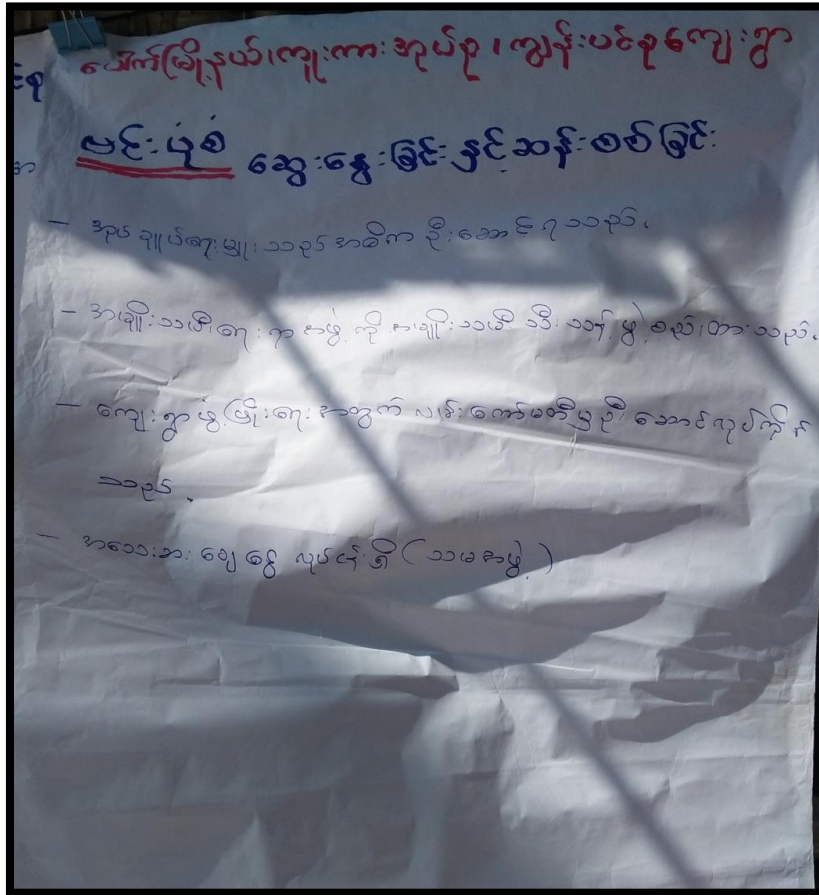 ပေါက်မြို့နယ်၊ကူးကားအုပ်စု၊ကျွန်းပင်စုကျေးရွာ
ဗင်းပုံစံ ဆွေးနွေးခြင်းနှင့်ဆန်းစစ်ခြင်း
- အုပ်ချုပ်ရေးမှူးသည်အဓိကဦးဆောင်ရသည်။
- အမျိုးသမီးရေးရာအဖွဲ့ကိုအမျိုးသမီးသီးသန့်ဖွဲ့စည်းထားသည်။
- ကျေးရွာဖွံ့ဖြိုးရေးအတွက်လမ်းကော်မတီမှဦးဆောင်လုပ်ကိုင်
သည်။
- အသေးစားချေးငွေလုပ်ငန်းရှိ(သမအဖွဲ့)